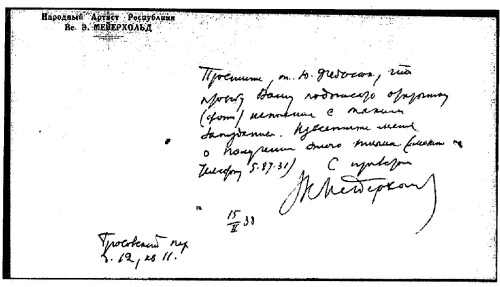 Народный Артист Республики
Вс. Э. МЕЙЕРХОЛЬД
Простите, т. Ю. что
просьбу Вашу подписать открытку
(фото) исполняю с таким
запозданием. Известите меня
о получении этого письма
телефону 5.87.31) С приветом
В Мейерхольд
15/II 33
Брюсовский пер
д. 12, кв 11.